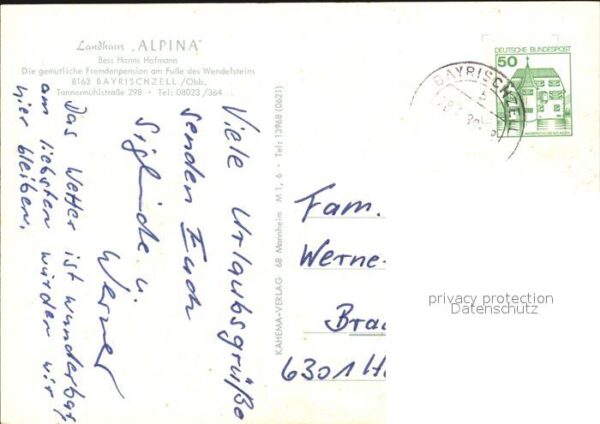 Landhaus „ALPINA“
Bes: Hanns Hofmann
Die gemütliche Fremdenpension am Fuße des Wendelsteins
8163 BAYRISCHZELL /Obb.
Tannermühlstraße 298 · Tel: 08023 /364
Viele Urlaubsgrüße
senden Euch
Siglinde u.
Werner
Das Wetter ist wunderbar,
am liebsten würden wir
hier bleiben.
KAHEMA-VERLAG 68 Mannheim M 1, 6 · Tel: 13968 (0621)
DEUTSCHE BUNDESPOST
50
BAYRISCHZELL
Fam.
Werne-
Brau
6301 H
privacy protection
Datenschutz